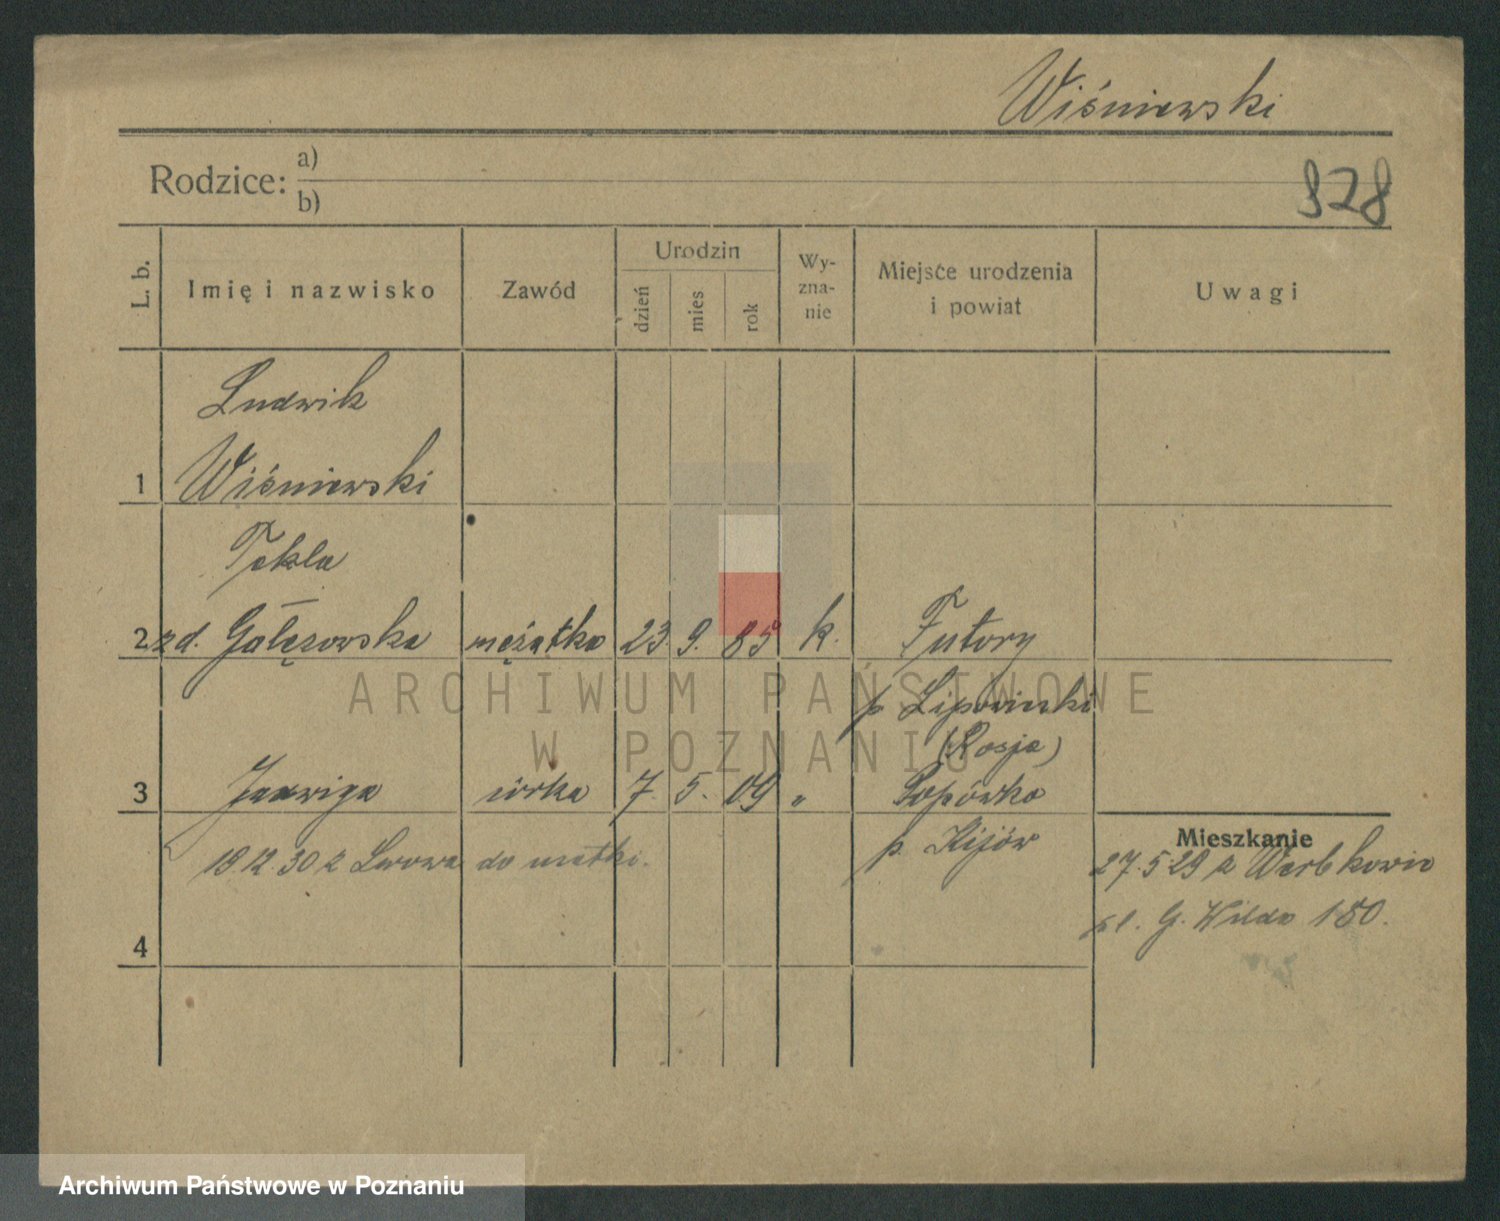 Wiśniewski
Rodzice: a)
b)
928
L. b.
Imię i nazwisko
Zawód
Urodzin
dzień
mies
rok
Wy-
zna-
nie
Miejsce urodzenia
i powiat
Uwagi
Ludwik
1 Wiśniewski
Tekla
2 zd. Gałęzowska mężatka 23. 9. 85 k. Futory
p. Lipowiecki
(Rosja)
3 Jadwiga córka 7. 5. 09 " Popówka
p. Kijów
18.12.30 z Lwowa do matki.
Mieszkanie
27.5.29 z Werbkowic
G. Wilda 180.
4
ARCHIWUM PAŃSTWOWE
W POZNANIU
Archiwum Państwowe w Poznaniu